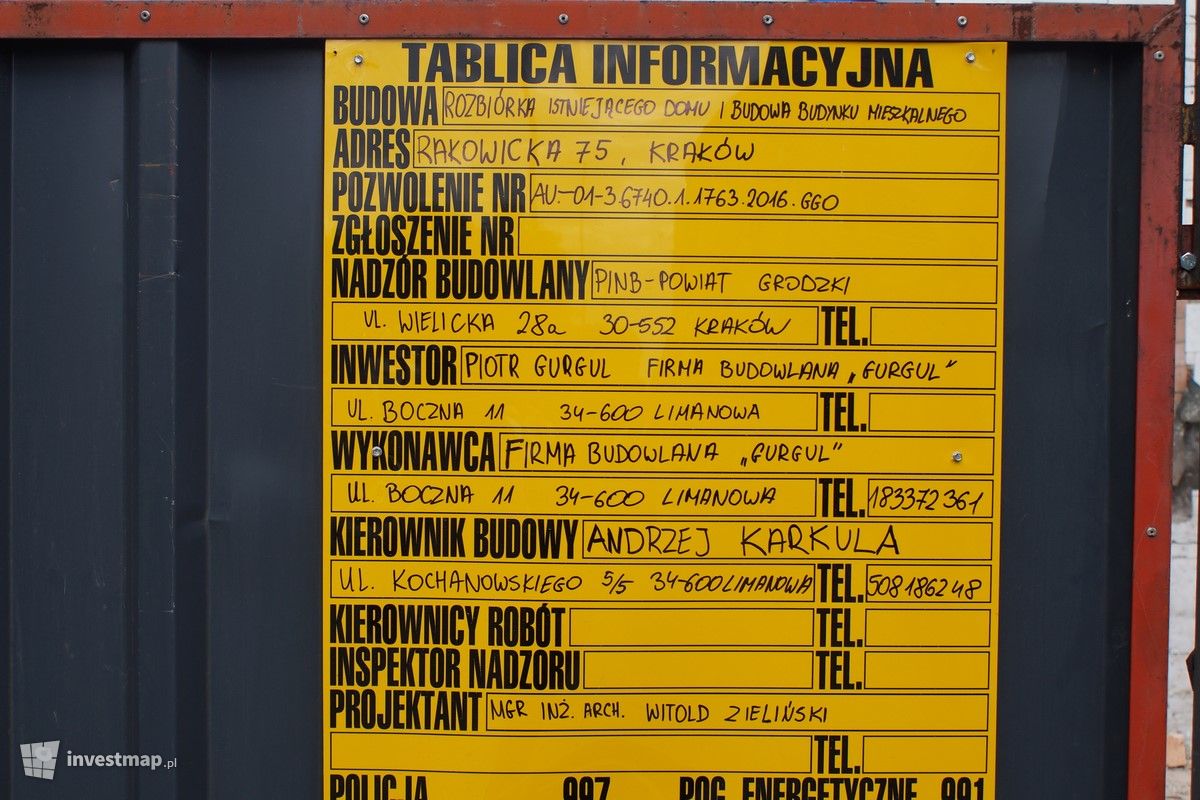 TABLICA INFORMACYJNA
BUDOWA ROZBIÓRKA ISTNIEJĄCEGO DOMU I BUDOWA BUDYNKU MIESZKALNEGO
ADRES RAKOWICKA 75, KRAKÓW
POZWOLENIE NR AU.-01-3.6740.1.1763.2016.GGO
ZGŁOSZENIE NR
NADZÓR BUDOWLANY PINB-POWIAT GRODZKI
UL. WIELICKA 28a 30-552 KRAKÓW TEL.
INWESTOR PIOTR GURGUL FIRMA BUDOWLANA „GURGUL"
UL. BOCZNA 11 34-600 LIMANOWA TEL.
WYKONAWCA FIRMA BUDOWLANA „GURGUL"
UL. BOCZNA 11 34-600 LIMANOWA TEL. 183372361
KIEROWNIK BUDOWY ANDRZEJ KARKULA
UL. KOCHANOWSKIEGO 5/5 34-600 LIMANOWA TEL. 508186248
KIEROWNICY ROBÓT TEL.
INSPEKTOR NADZORU TEL.
PROJEKTANT MGR INŻ. ARCH. WITOLD ZIELIŃSKI
TEL.
POLICJA 997 POG. ENERGETYCZNE 991
investmap.pl